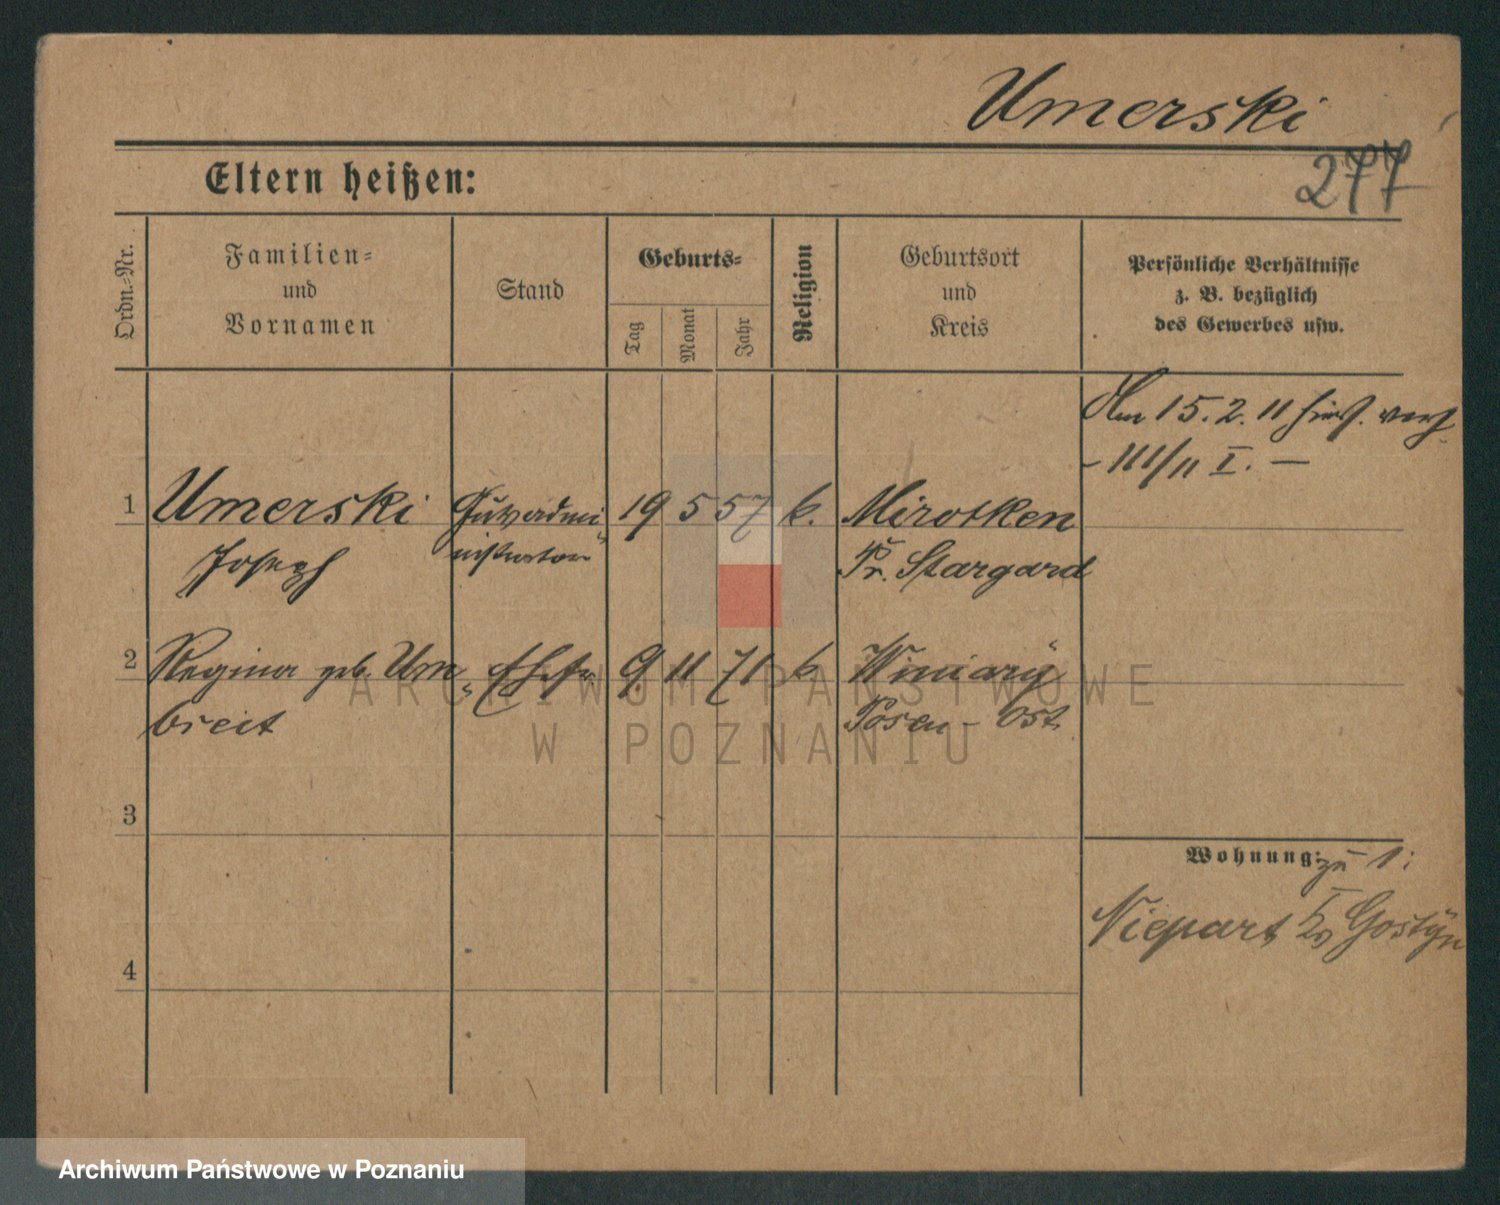 Umerski
277
Eltern heißen:
Ordn.-Nr.
Familien-
und
Vornamen
Stand
Geburts-
Tag
Monat
Jahr
Religion
Geburtsort
und
Kreis
Persönliche Verhältnisse
z. B. bezüglich
des Gewerbes usw.
Am 15.2.11 hies.
III/11 I. —
1 Umerski Gutsadmi 19 5 57 k. Mirotken
Joseph nistrator Pr. Stargard
2 Regina geb. Um Ehefr 9 11 71 k. Winiary
breit Posen - Ost
3
Wohnung: zu 1:
Niepart Kr Gostyn
4
ARCHIWUM PAŃSTWOWE
W POZNANIU
Archiwum Państwowe w Poznaniu